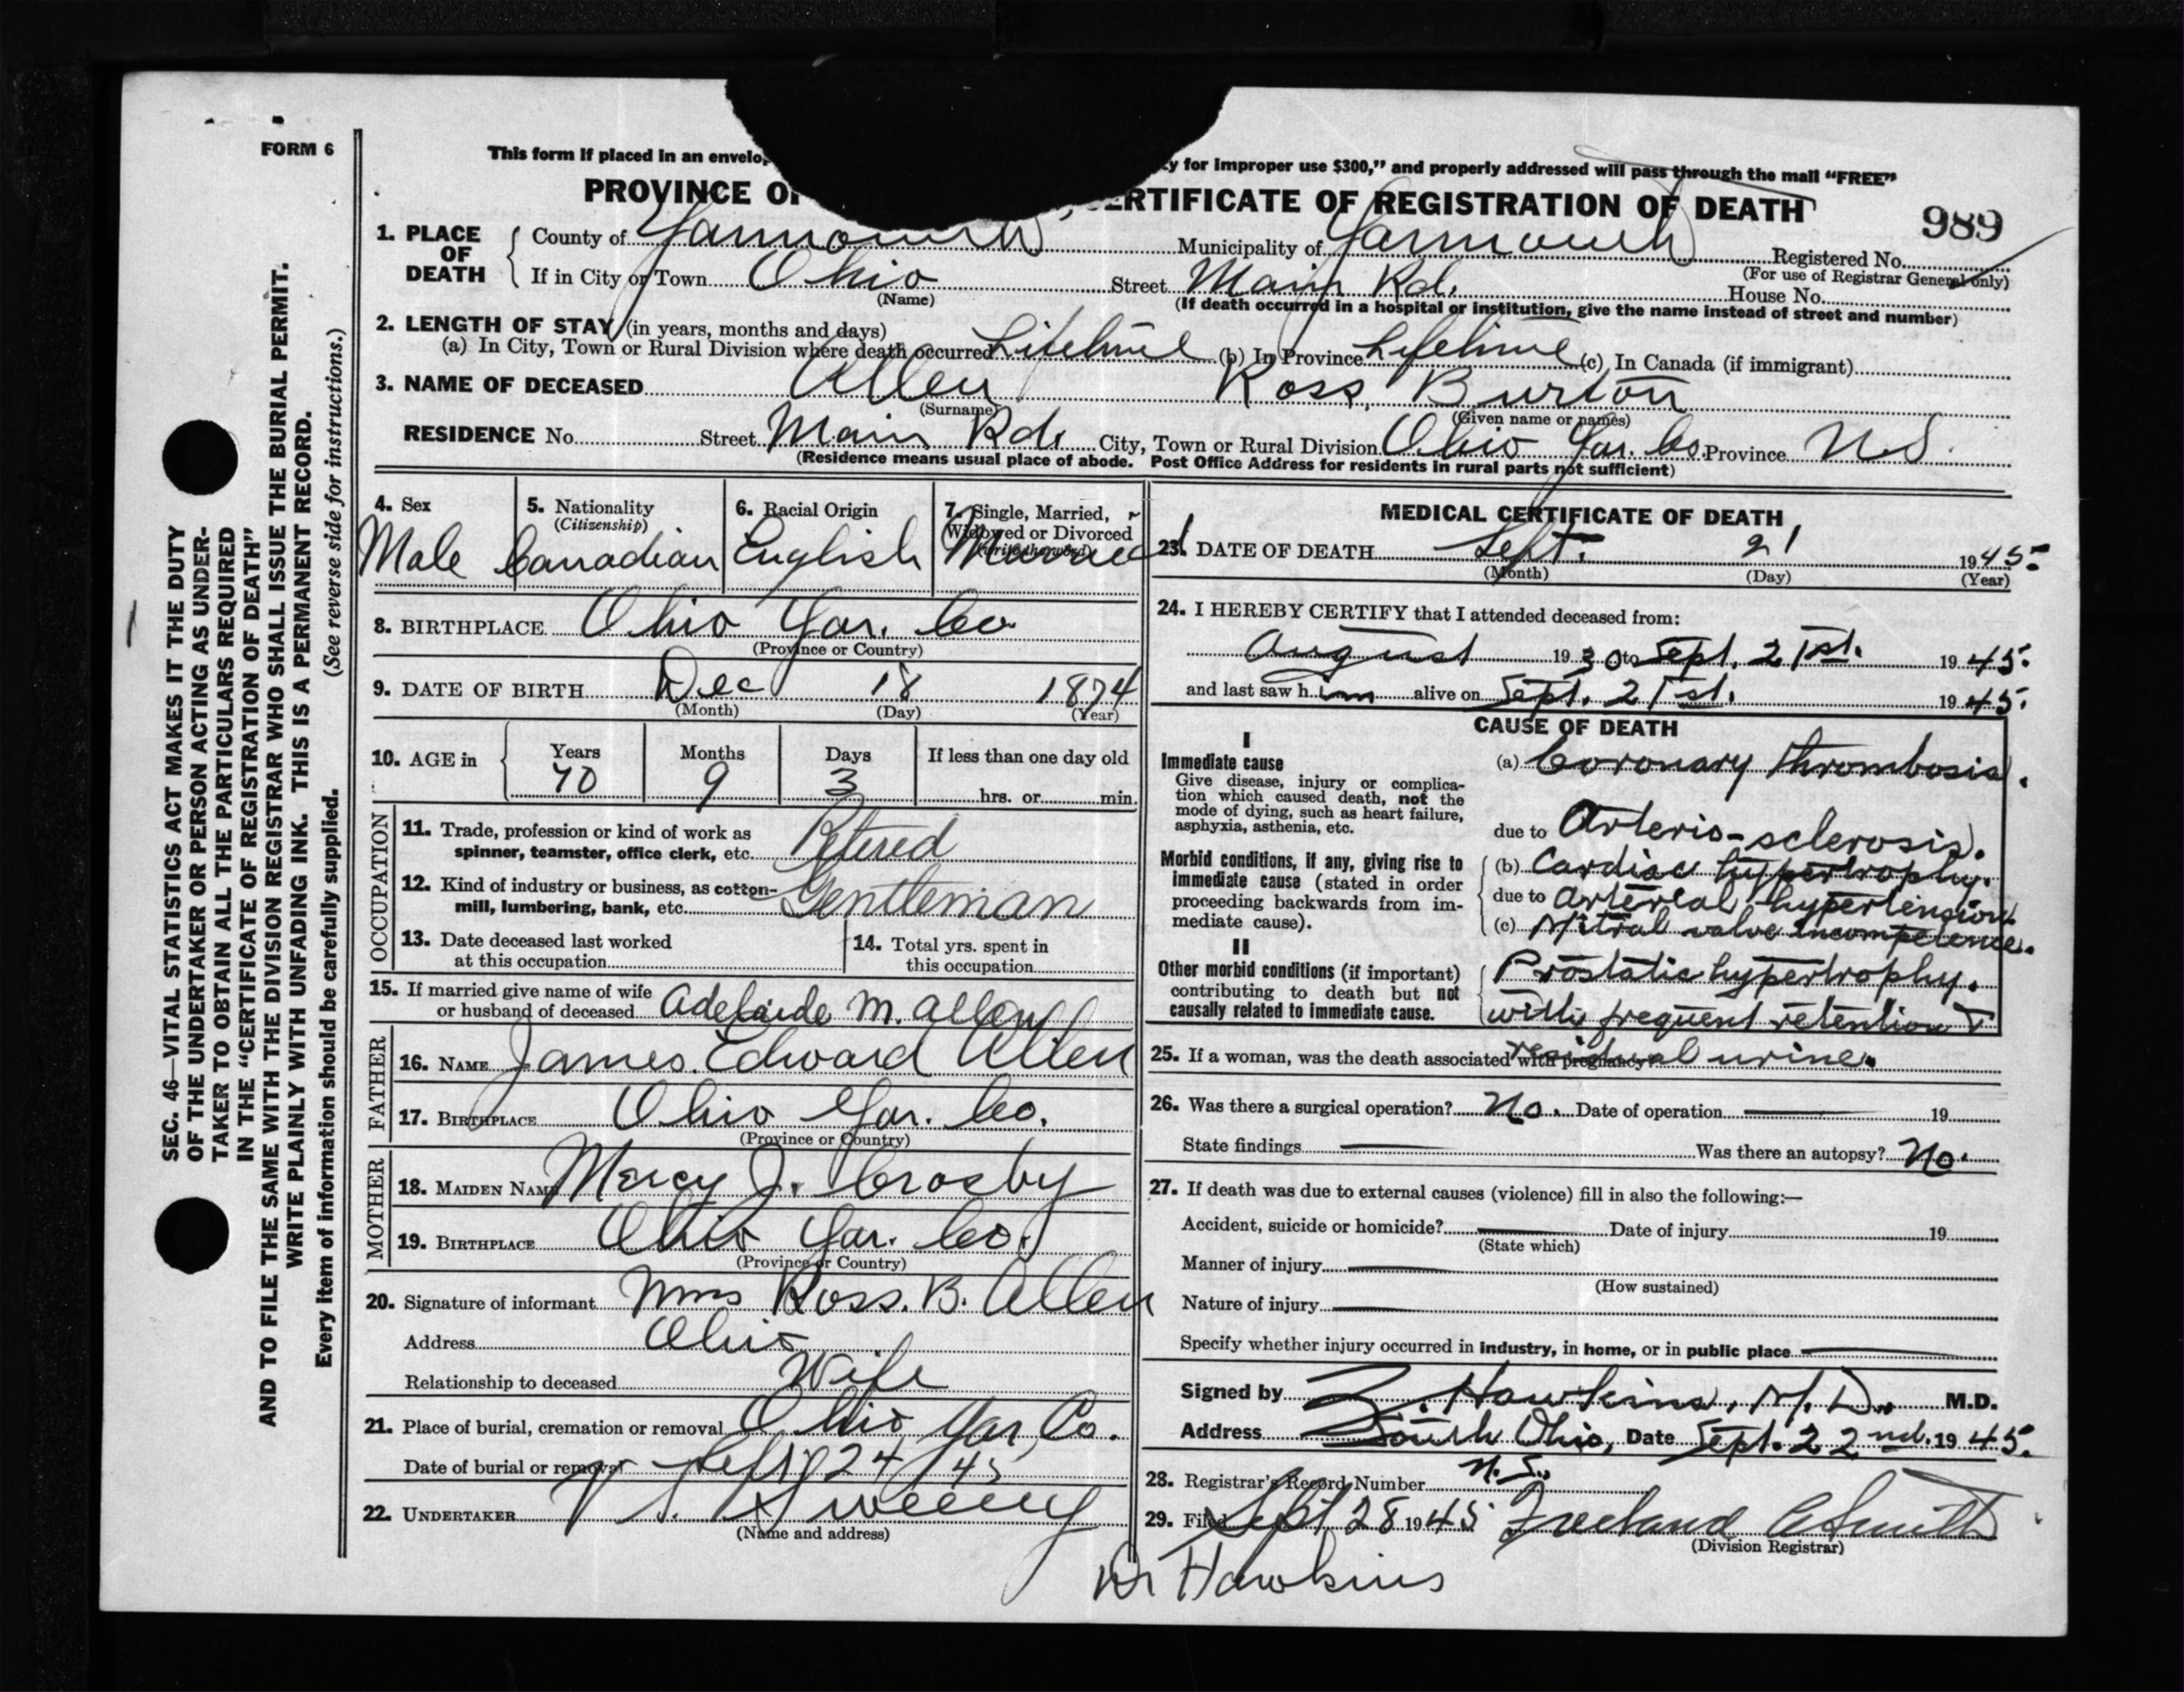 FORM 6
This form if placed in an envelo y for improper use $300," and properly addressed will pass through the mail "FREE"
PROVINCE O , CERTIFICATE OF REGISTRATION OF DEATH
989
1. PLACE OF DEATH { County of Yarmouth Municipality of Yarmouth Registered No.
(For use of Registrar General only)
If in City or Town Ohio Street Main Rd. House No.
(Name) (If death occurred in a hospital or institution, give the name instead of street and number)
2. LENGTH OF STAY (in years, months and days)
(a) In City, Town or Rural Division where death occurred Lifetime (b) In Province Lifetime (c) In Canada (if immigrant)
3. NAME OF DECEASED Allen Ross Burton
(Surname) (Given name or names)
RESIDENCE No. Street Main Rd. City, Town or Rural Division Ohio Yar. Co. Province N.S.
(Residence means usual place of abode. Post Office Address for residents in rural parts not sufficient)
4. Sex Male
5. Nationality (Citizenship) Canadian
6. Racial Origin English
7. Single, Married, Widowed or Divorced (write the word) Married
8. BIRTHPLACE Ohio Yar. Co
(Province or Country)
9. DATE OF BIRTH Dec 18 1874
(Month) (Day) (Year)
10. AGE in { Years 70 Months 9 Days 3 If less than one day old
hrs. or min.
OCCUPATION
11. Trade, profession or kind of work as spinner, teamster, office clerk, etc. Retired
12. Kind of industry or business, as cotton-mill, lumbering, bank, etc. Gentleman
13. Date deceased last worked at this occupation
14. Total yrs. spent in this occupation
15. If married give name of wife or husband of deceased Adelaide M. Allen
FATHER
16. NAME James Edward Allen
17. BIRTHPLACE Ohio Yar. Co.
(Province or Country)
MOTHER
18. MAIDEN NAME Mercy J. Crosby
19. BIRTHPLACE Ohio Yar. Co.
(Province or Country)
20. Signature of informant Mrs Ross. B. Allen
Address Ohio
Relationship to deceased Wife
21. Place of burial, cremation or removal Ohio Yar Co.
Date of burial or removal Sept 24/45
22. UNDERTAKER V S. Sweeny
(Name and address)
MEDICAL CERTIFICATE OF DEATH
23. DATE OF DEATH Sept. 21 1945
(Month) (Day) (Year)
24. I HEREBY CERTIFY that I attended deceased from:
August 1930 to Sept. 21st. 1945.
and last saw him alive on Sept. 21st. 1945.
CAUSE OF DEATH
I
Immediate cause
Give disease, injury or complication which caused death, not the mode of dying, such as heart failure, asphyxia, asthenia, etc.
(a) Coronary thrombosis.
due to Arterio-sclerosis.
Morbid conditions, if any, giving rise to immediate cause (stated in order proceeding backwards from immediate cause).
(b) Cardiac hypertrophy.
due to arterial hypertension
(c) Mitral valve incompetence.
II
Other morbid conditions (if important) contributing to death but not causally related to immediate cause.
Prostatic hypertrophy.
with frequent retention &
25. If a woman, was the death associated with pregnancy? residual urine.
26. Was there a surgical operation? No. Date of operation 19
State findings Was there an autopsy? No.
27. If death was due to external causes (violence) fill in also the following:—
Accident, suicide or homicide? Date of injury 19
(State which)
Manner of injury
(How sustained)
Nature of injury
Specify whether injury occurred in industry, in home, or in public place
Signed by Z. Hawkins, M.D. M.D.
Address South Ohio, N.S. Date Sept. 22nd. 1945.
28. Registrar's Record Number
29. Filed Sept 28 1945 Freeland A Smith
(Division Registrar)
Dr Hawkins
SEC. 46—VITAL STATISTICS ACT MAKES IT THE DUTY
OF THE UNDERTAKER OR PERSON ACTING AS UNDER-
TAKER TO OBTAIN ALL THE PARTICULARS REQUIRED
IN THE "CERTIFICATE OF REGISTRATION OF DEATH"
AND TO FILE THE SAME WITH THE DIVISION REGISTRAR WHO SHALL ISSUE THE BURIAL PERMIT.
WRITE PLAINLY WITH UNFADING INK. THIS IS A PERMANENT RECORD.
Every item of information should be carefully supplied. (See reverse side for instructions.)